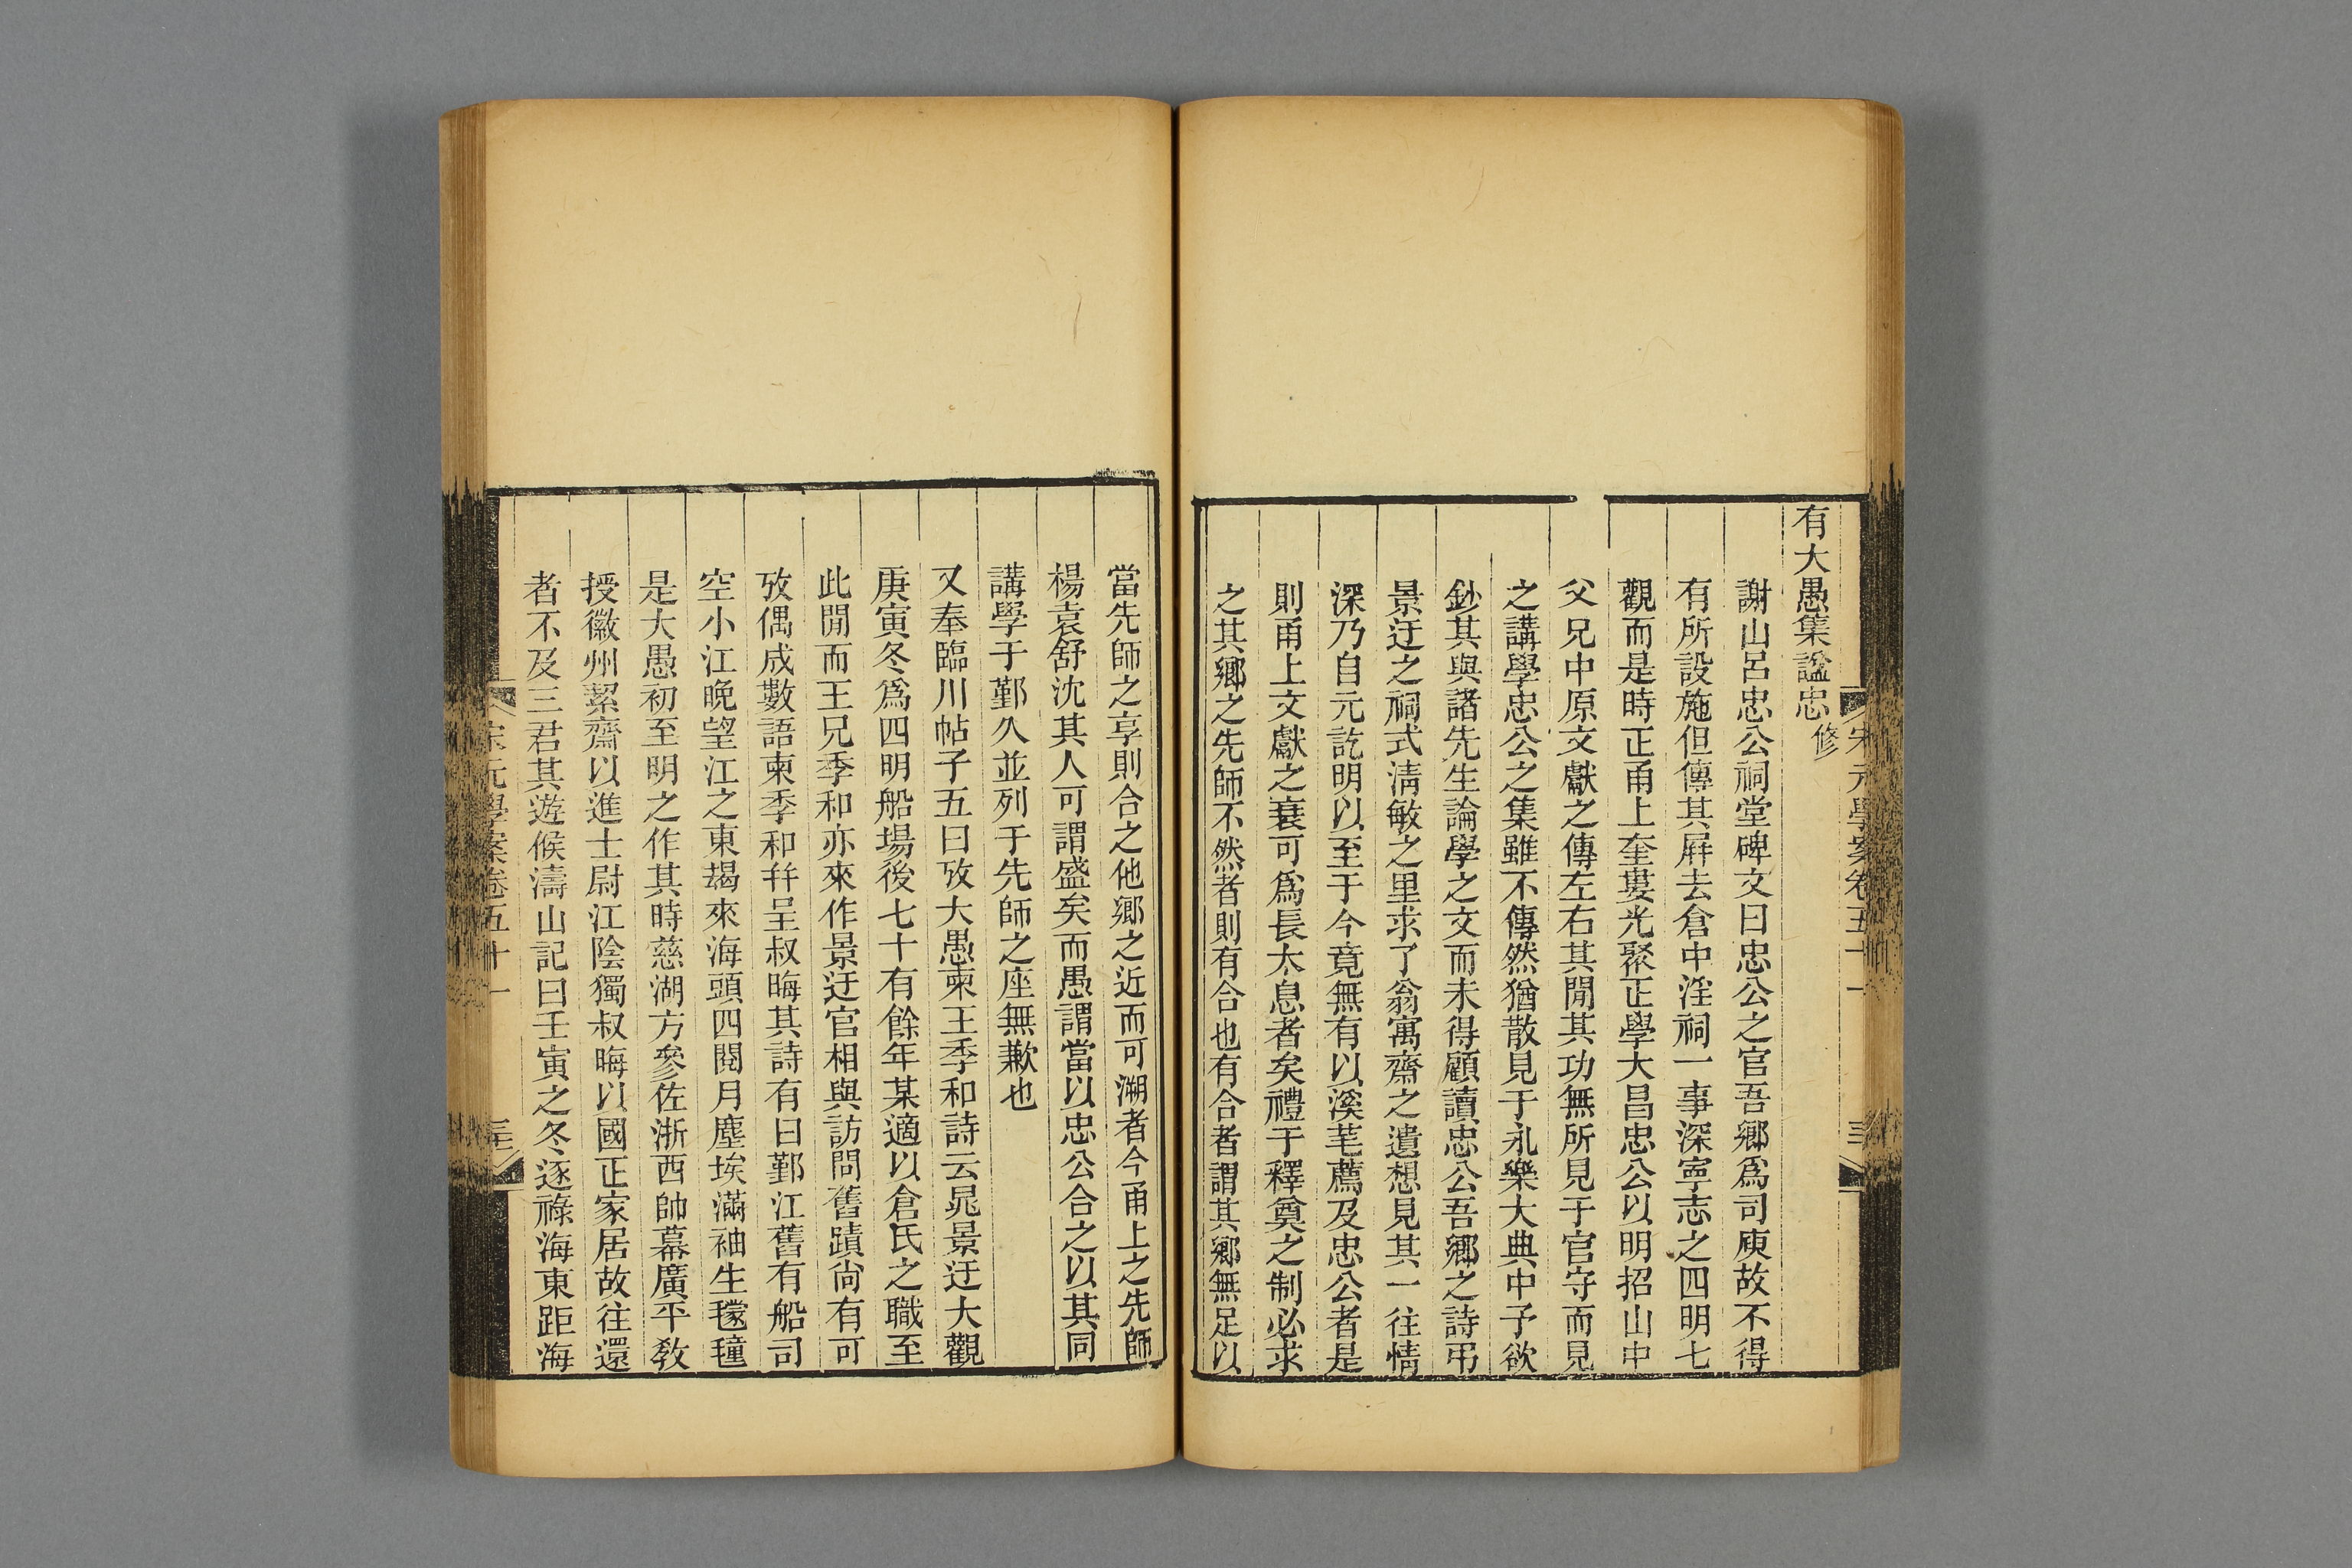 宋元學案卷五十一
有大愚集謚忠修
謝山呂忠公祠堂碑文曰忠公之官吾鄉爲司庾故不得
有所設施但傳其屛去倉中淫祠一事深寧志之四明七
觀而是時正甬上奎婁光聚正學大昌忠公以明招山中
父兄中原文獻之傳左右其閒其功無所見于官守而見
之講學忠公之集雖不傳然猶散見于永樂大典中予欲
鈔其與諸先生論學之文而未得顧讀忠公吾鄉之詩弔
景迂之祠式淸敏之里求了翁寓齋之遺想見其一往情
深乃自元訖明以至于今竟無有以溪芼薦及忠公者是
則甬上文獻之衰可爲長太息者矣禮于釋奠之制必求
之其鄉之先師不然者則有合也有合者謂其鄉無足以
當先師之享則合之他鄉之近而可溯者今甬上之先師
楊袁舒沈其人可謂盛矣而愚謂當以忠公合之以其同
講學于鄞久並列于先師之座無歉也
又奉臨川帖子五曰攷大愚柬王季和詩云晁景迂大觀
庚寅冬爲四明船場後七十有餘年某適以倉氏之職至
此閒而王兄季和亦來作景迂官相與訪問舊蹟尙有可
攷偶成數語柬季和幷呈叔晦其詩有曰鄞江舊有船司
空小江晚望江之東朅來海頭四閱月塵埃滿袖生氋氃
是大愚初至明之作其時慈湖方參佐浙西帥幕廣平敎
授徽州絜齋以進士尉江陰獨叔晦以國正家居故往還
者不及三君其遊候濤山記曰壬寅之冬逐祿海東距海
宋元學案卷五十一